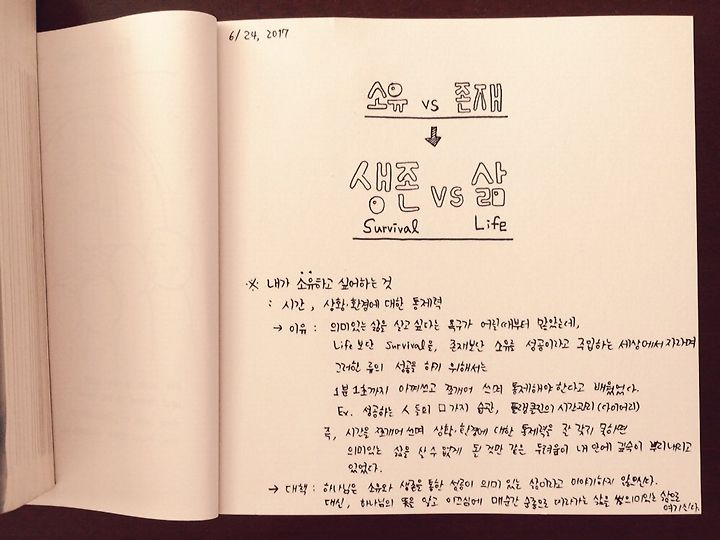 6/24, 2017
소유 vs 존재
생존 vs 삶
Survival Life
※ 내가 소유하고 싶어하는 것
: 시간, 상황·환경에 대한 통제력
→ 이유 : 의미있는 삶을 살고 싶다는 욕구가 어릴때부터 많았는데,
Life보단 Survival을, 존재보단 소유를 성공이라고 주입하는 세상에서 자라며
그러한 류의 성공을 하기 위해서는
1분 1초까지 아껴쓰고 쪼개어 쓰며 통제해야 한다고 배웠었다.
Ex. 성공하는 사람들의 □가지 습관, 플랭클린의 시간관리 (다이어리)
즉, 시간을 쪼개어 쓰며 상황·환경에 대한 통제력을 잘 갖지 못하면
의미있는 삶을 살 수 없게 된 것만 같은 두려움이 내 안에 깊숙이 뿌리내리고
있었다.
→ 대책 : 하나님은 소유와 생존을 통한 성공이 의미 있는 삶이라고 이야기하지 않으신다.
대신, 하나님의 뜻을 알고 이끄심에 매순간 순종으로 따라가는 삶을 의미있는 삶으로
여기신다.